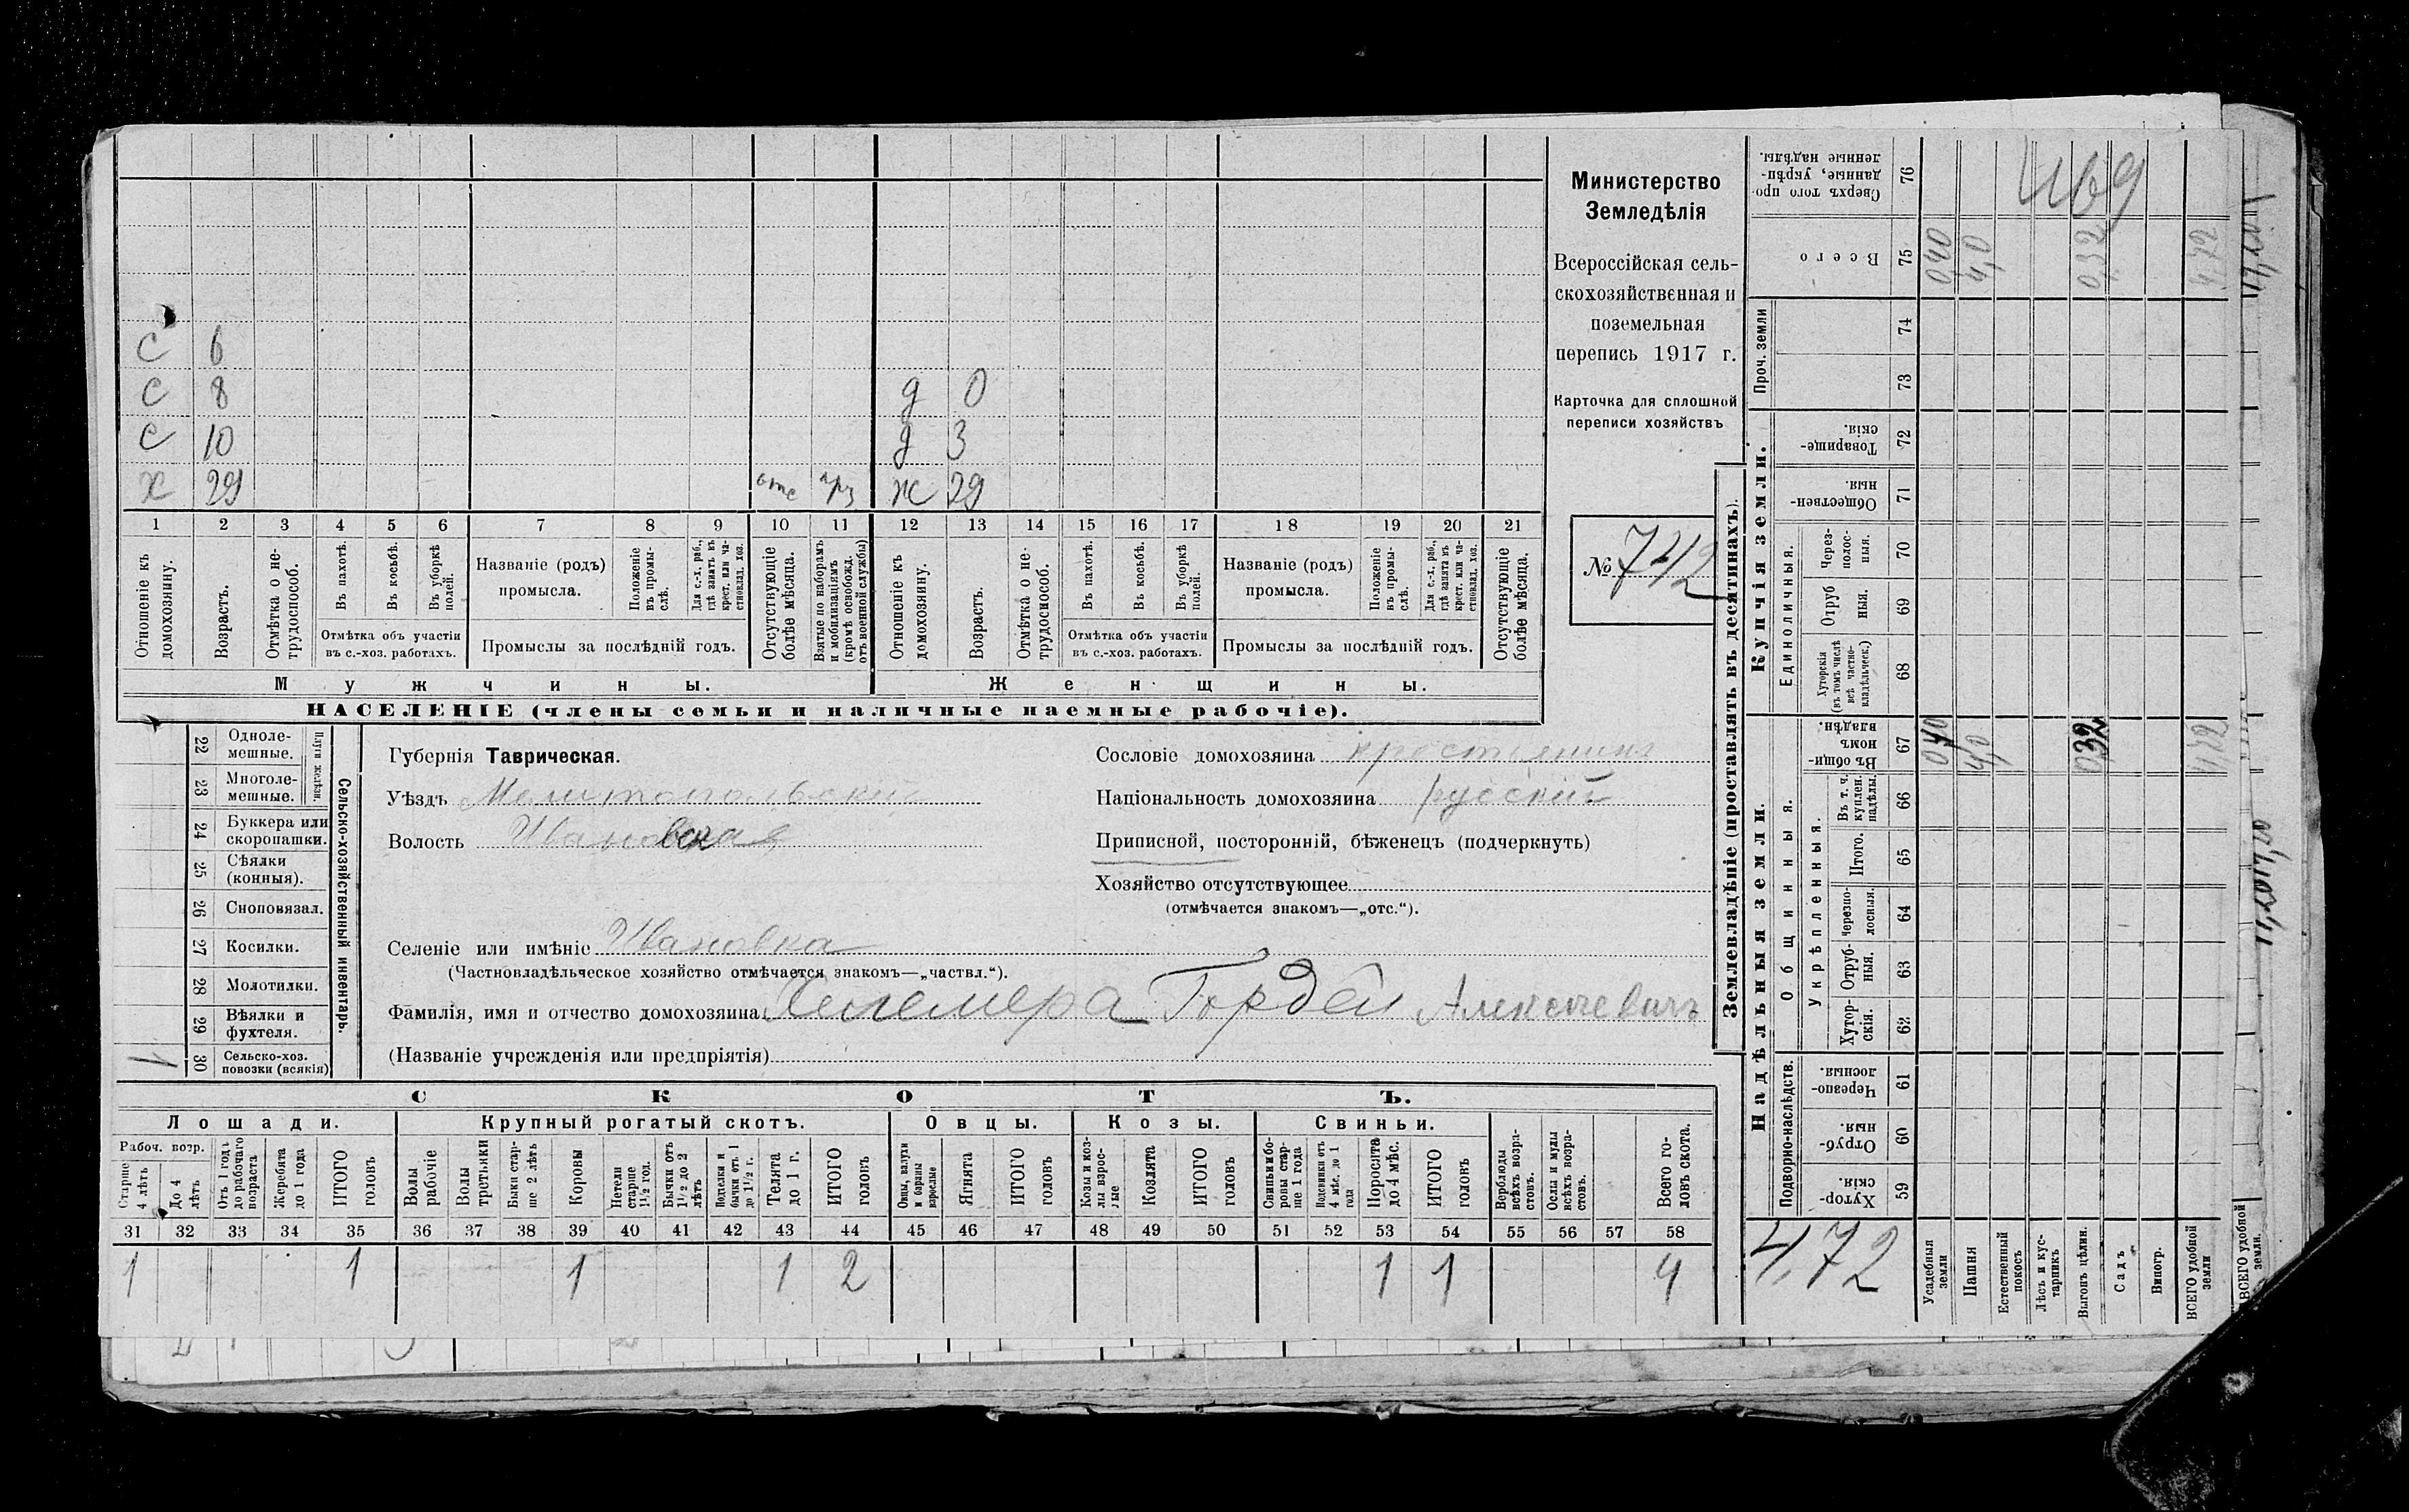 С 6
С 8 д 0
С 10 д 3
х 29 отс ж 29
1 2 3 4 5 6 7 8 9 10 11 12 13 14 15 16 17 18 19 20 21
Отношеніе къ домохозяину.
Возрастъ.
Отмѣтка о нетрудоспособ.
Въ пахотѣ.
Въ косьбѣ.
Въ уборкѣ полей.
Отмѣтка объ участіи
въ с.-хоз. работахъ.
Названіе (родъ)
промысла.
Положеніе въ промыслѣ.
Для с.-х. раб., гдѣ занятъ въ крест. или частновлад. хоз.
Промыслы за послѣдній годъ.
Отсутствующіе болѣе мѣсяца.
Взятые по наборамъ и мобилизаціямъ (кромѣ освобожд. отъ военной службы)
Отношеніе къ домохозяину.
Возрастъ.
Отмѣтка о нетрудоспособ.
Въ пахотѣ.
Въ косьбѣ.
Въ уборкѣ полей.
Отмѣтка объ участіи
въ с.-хоз. работахъ.
Названіе (родъ)
промысла.
Положеніе въ промыслѣ.
Для с.-х. раб., гдѣ занята въ крест. или частновлад. хоз.
Промыслы за послѣдній годъ.
Отсутствующіе болѣе мѣсяца.
Мужчины.
Женщины.
НАСЕЛЕНІЕ (члены семьи и наличные наемные рабочіе).
Министерство
Земледѣлія
Всероссійская сель-
скохозяйственная и
поземельная
перепись 1917 г.
Карточка для сплошной
переписи хозяйствъ
№ 742
22 Однолемешные.
23 Многолемешные.
Плуги желѣзн.
24 Буккера или скоропашки.
25 Сѣялки (конныя).
26 Сноповязал.
27 Косилки.
28 Молотилки.
29 Вѣялки и фухтеля.
1 30 Сельско-хоз. повозки (всякія)
Сельско-хозяйственный инвентарь.
Губернія Таврическая.
Уѣздъ Мелитопольскій
Волость Ивановская
Селеніе или имѣніе Ивановка
(Частновладѣльческое хозяйство отмѣчается знакомъ—„частвл.“).
Фамилія, имя и отчество домохозяина Гордей Алексѣевичъ
(Названіе учрежденія или предпріятія)
Сословіе домохозяина крестьянинъ
Національность домохозяина русскій
Приписной, посторонній, бѣженецъ (подчеркнуть)
Хозяйство отсутствующее
(отмѣчается знакомъ—„отс.“).
СКОТЪ.
Лошади.
Крупный рогатый скотъ.
Овцы.
Козы.
Свиньи.
Рабоч. возр.
Старше 4 лѣтъ
До 4 лѣтъ
Отъ 1 года до рабочаго возраста
Жеребята до 1 года
ИТОГО головъ
Волы рабочіе
Волы третьяки
Быки старше 2 лѣтъ
Коровы
Нетели старше 1½ год.
Бычки отъ 1½ до 2 лѣтъ
Подтелки и бычки отъ 1 до 1½ г.
Телята до 1 г.
ИТОГО головъ
Овцы, валухи и бараны взрослые
Ягнята
ИТОГО головъ
Козы и козлы взрослые
Козлята
ИТОГО головъ
Свиньи и боровы старше 1 года
Подсвинки отъ 4 мѣс. до 1 года
Поросята до 4 мѣс.
ИТОГО головъ
Верблюды всѣхъ возрастовъ.
Ослы и мулы всѣхъ возрастовъ.
Всего головъ скота.
31 32 33 34 35 36 37 38 39 40 41 42 43 44 45 46 47 48 49 50 51 52 53 54 55 56 57 58
1 1 1 1 2 1 1 4
Землевладѣніе (проставлять въ десятинахъ).
Купчія земли.
Надѣльныя земли.
Сверхъ того проданные, укрѣпленные надѣлы. 76
Всего 75 0,40 4,0 0,32 4,72
Проч. земли 74
73
Товарищескія. 72
Общественныя. 71
Единоличныя.
Черезполосныя. 70
Отрубныя. 69
Хуторскія (въ томъ числѣ всѣ частновладѣльческ.) 68
Общинныя.
Въ общинномъ владѣн. 67 0,40 4,0 0,32 4,72
Укрѣпленныя.
Въ т. ч. куплен. надѣлы. 66
Итого. 65
Черезполосныя. 64
Отрубныя. 63
Хуторскія. 62
Подворно-наслѣдств.
Черезполосныя. 61
Отрубныя. 60
Хуторскія. 59
4,72
Усадебныя земли
Пашня
Естественный покосъ
Лѣсъ и кустарникъ
Выгонъ цѣлин.
Садъ
Виногр.
ВСЕГО удобной земли
ВСЕГО удобной земли.